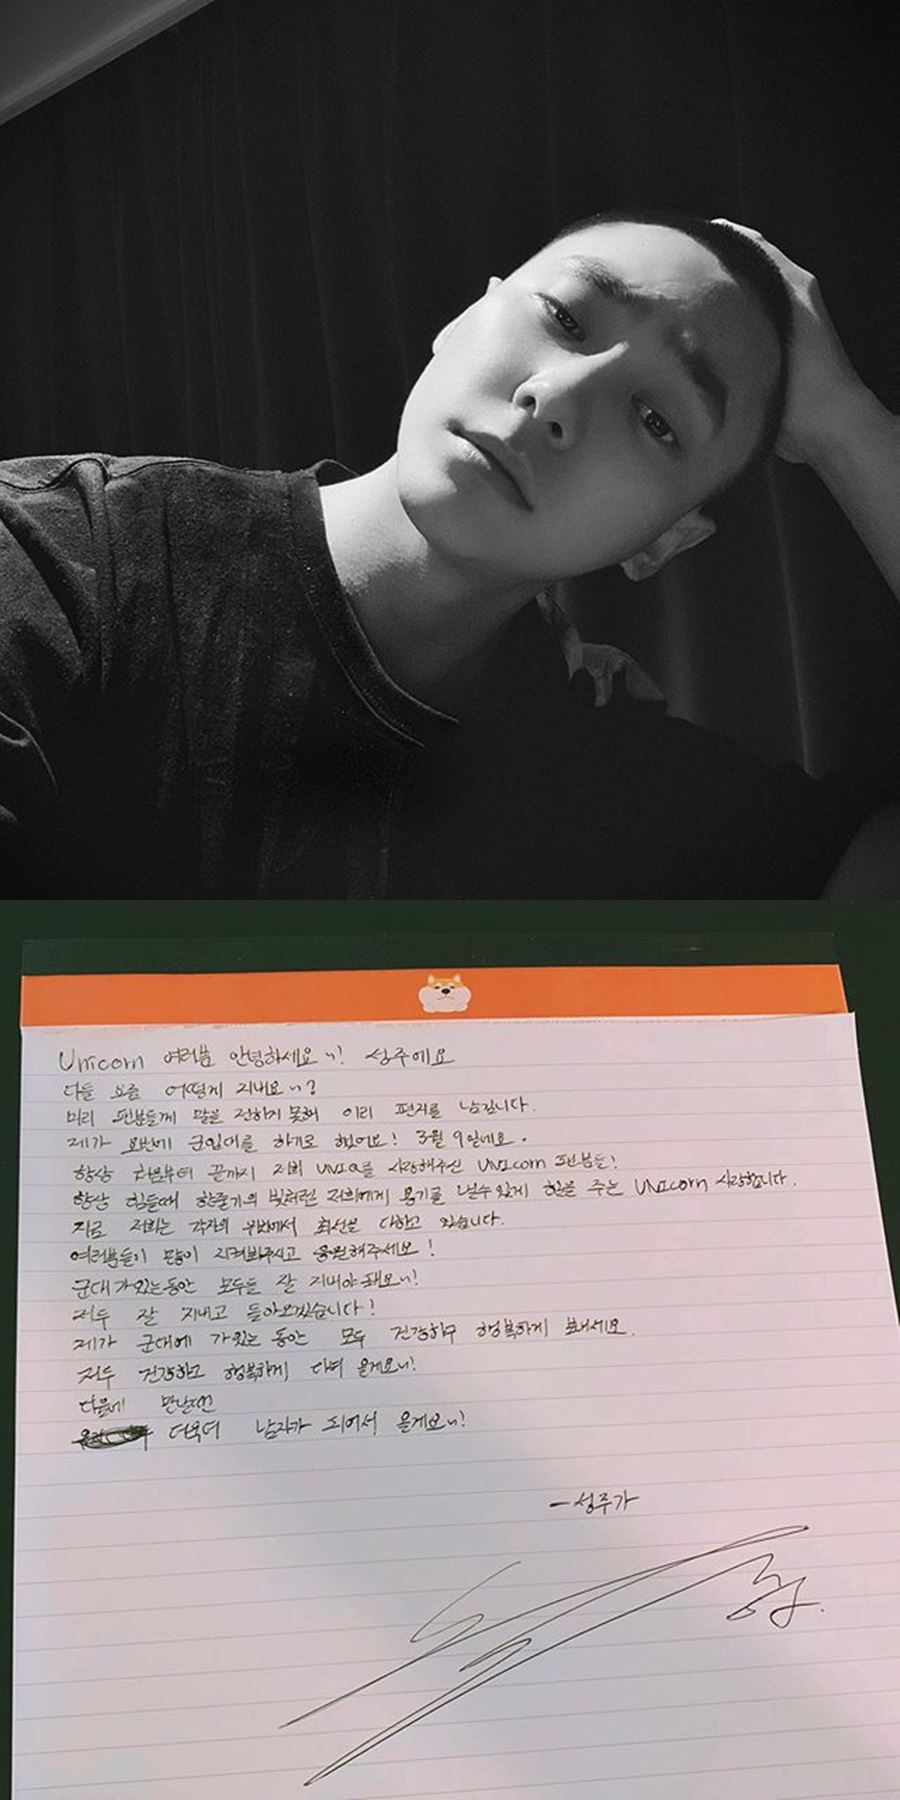 Unicorn 여러분 안녕하세요~! 성주에요
다들 요즘 어떻게 지내요~?
미리 팬분들께 말을 전하지 못해 이리 편지를 남깁니다.
제가 요번에 군입대를 하기로 했어요! 3월 9일네요.
항상 처음부터 끝까지 저희 UNIQ를 사랑해주신 UNIcorn 팬분들!
항상 힘들때 한줄기의 빛처럼 저희에게 용기를 낼수있게 힘을 주는 UNIcorn 사랑합니다.
지금 저희는 각자의 위치에서 최선을 다하고 있습니다.
여러분들이 많이 지켜봐주시고 응원해주세요!
군대 가있는동안 모두들 잘 지내야돼요~!
저두 잘 지내고 돌아오겠습니다!
제가 군대에 가있는 동안 모두 건강하구 행복하게 보내세요.
저두 건강하고 행복하게 다녀 올게요~!
다음에 만날땐
더욱더 남자가 되어서 올게요~!
-성주가